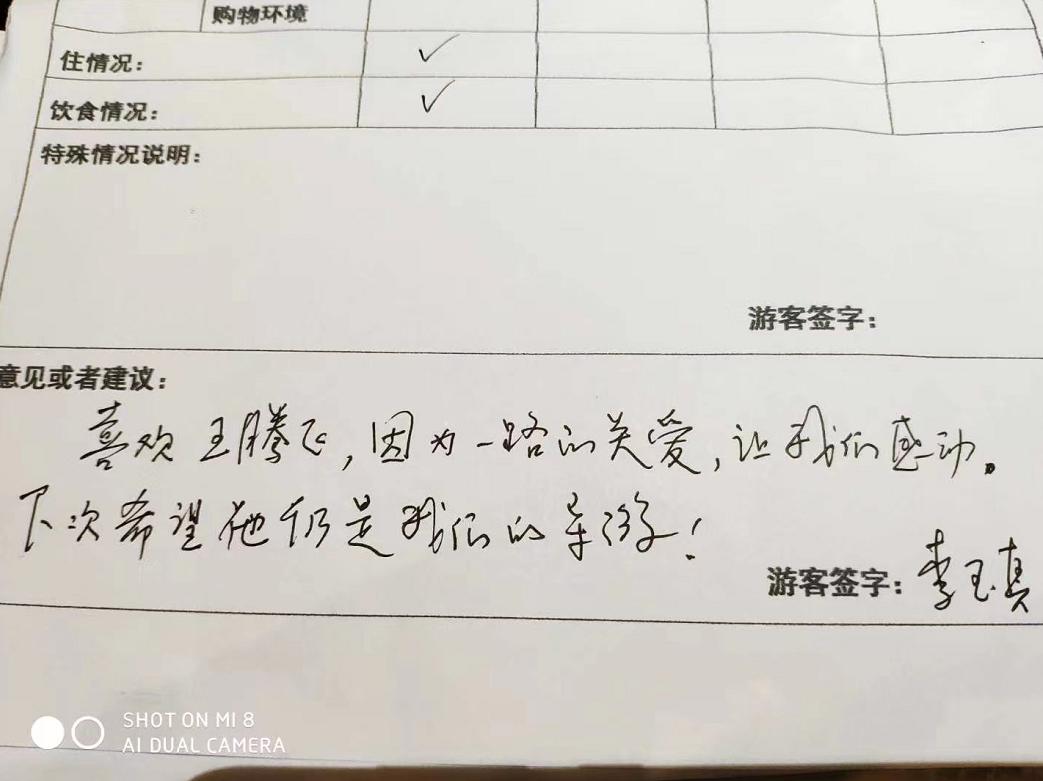 购物环境
住情况： ✓
饮食情况： ✓
特殊情况说明：
游客签字：
意见或者建议：
喜欢王腾飞，因为一路的关爱，让我们感动。
下次希望他仍是我们的导游！
游客签字：李玉真
SHOT ON MI 8
AI DUAL CAMERA